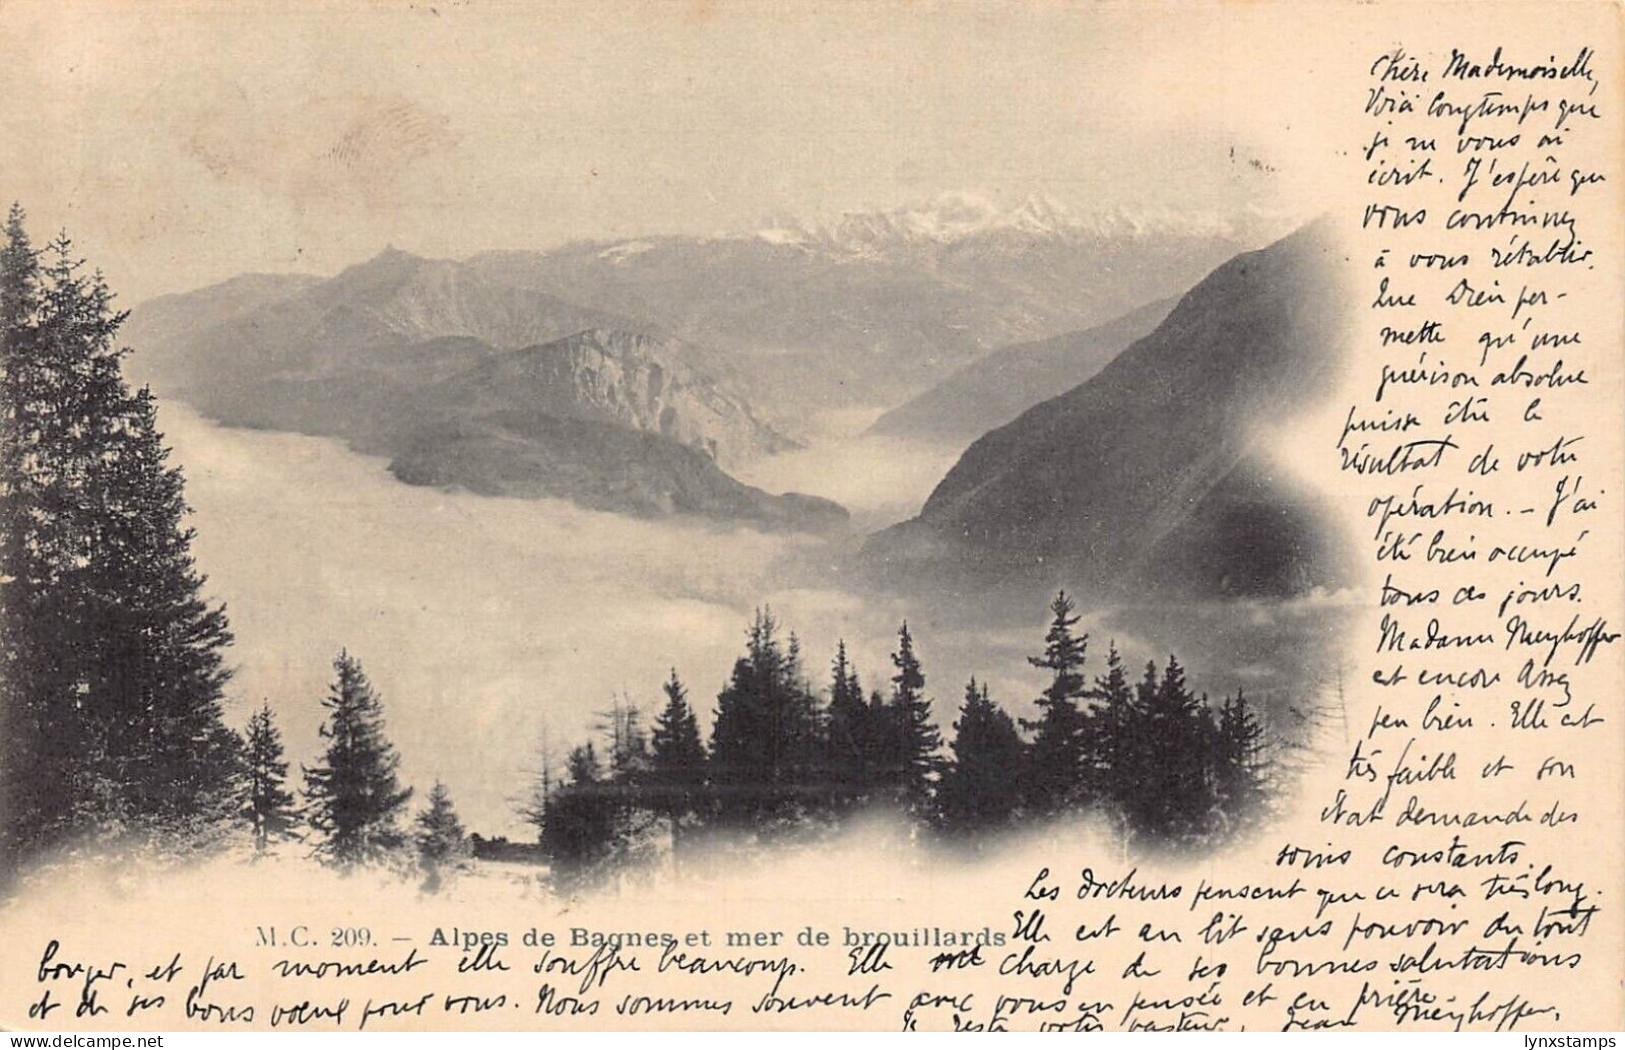 Chère Mademoiselle,
Voici longtemps que
je ne vous ai
écrit. J'espère que
vous continuez
à vous rétablir.
Que Dieu per-
mette qu'une
guérison absolue
puisse être le
résultat de votre
opération. - J'ai
été bien occupé
tous ces jours.
Madame Meyhoffer
est encore assez
peu bien. Elle est
très faible et son
état demande des
soins constants.
Les docteurs pensent que ce sera très long.
M.C. 209. - Alpes de Bagnes et mer de brouillards
Elle est au lit sans pouvoir du tout
bouger, et par moment elle souffre beaucoup. Elle me charge de ses bonnes salutations
et de ses bons vœux pour vous. Nous sommes souvent avec vous en pensée et en prière.
Je reste votre pasteur, Jean Meyhoffer.
lynxstamps